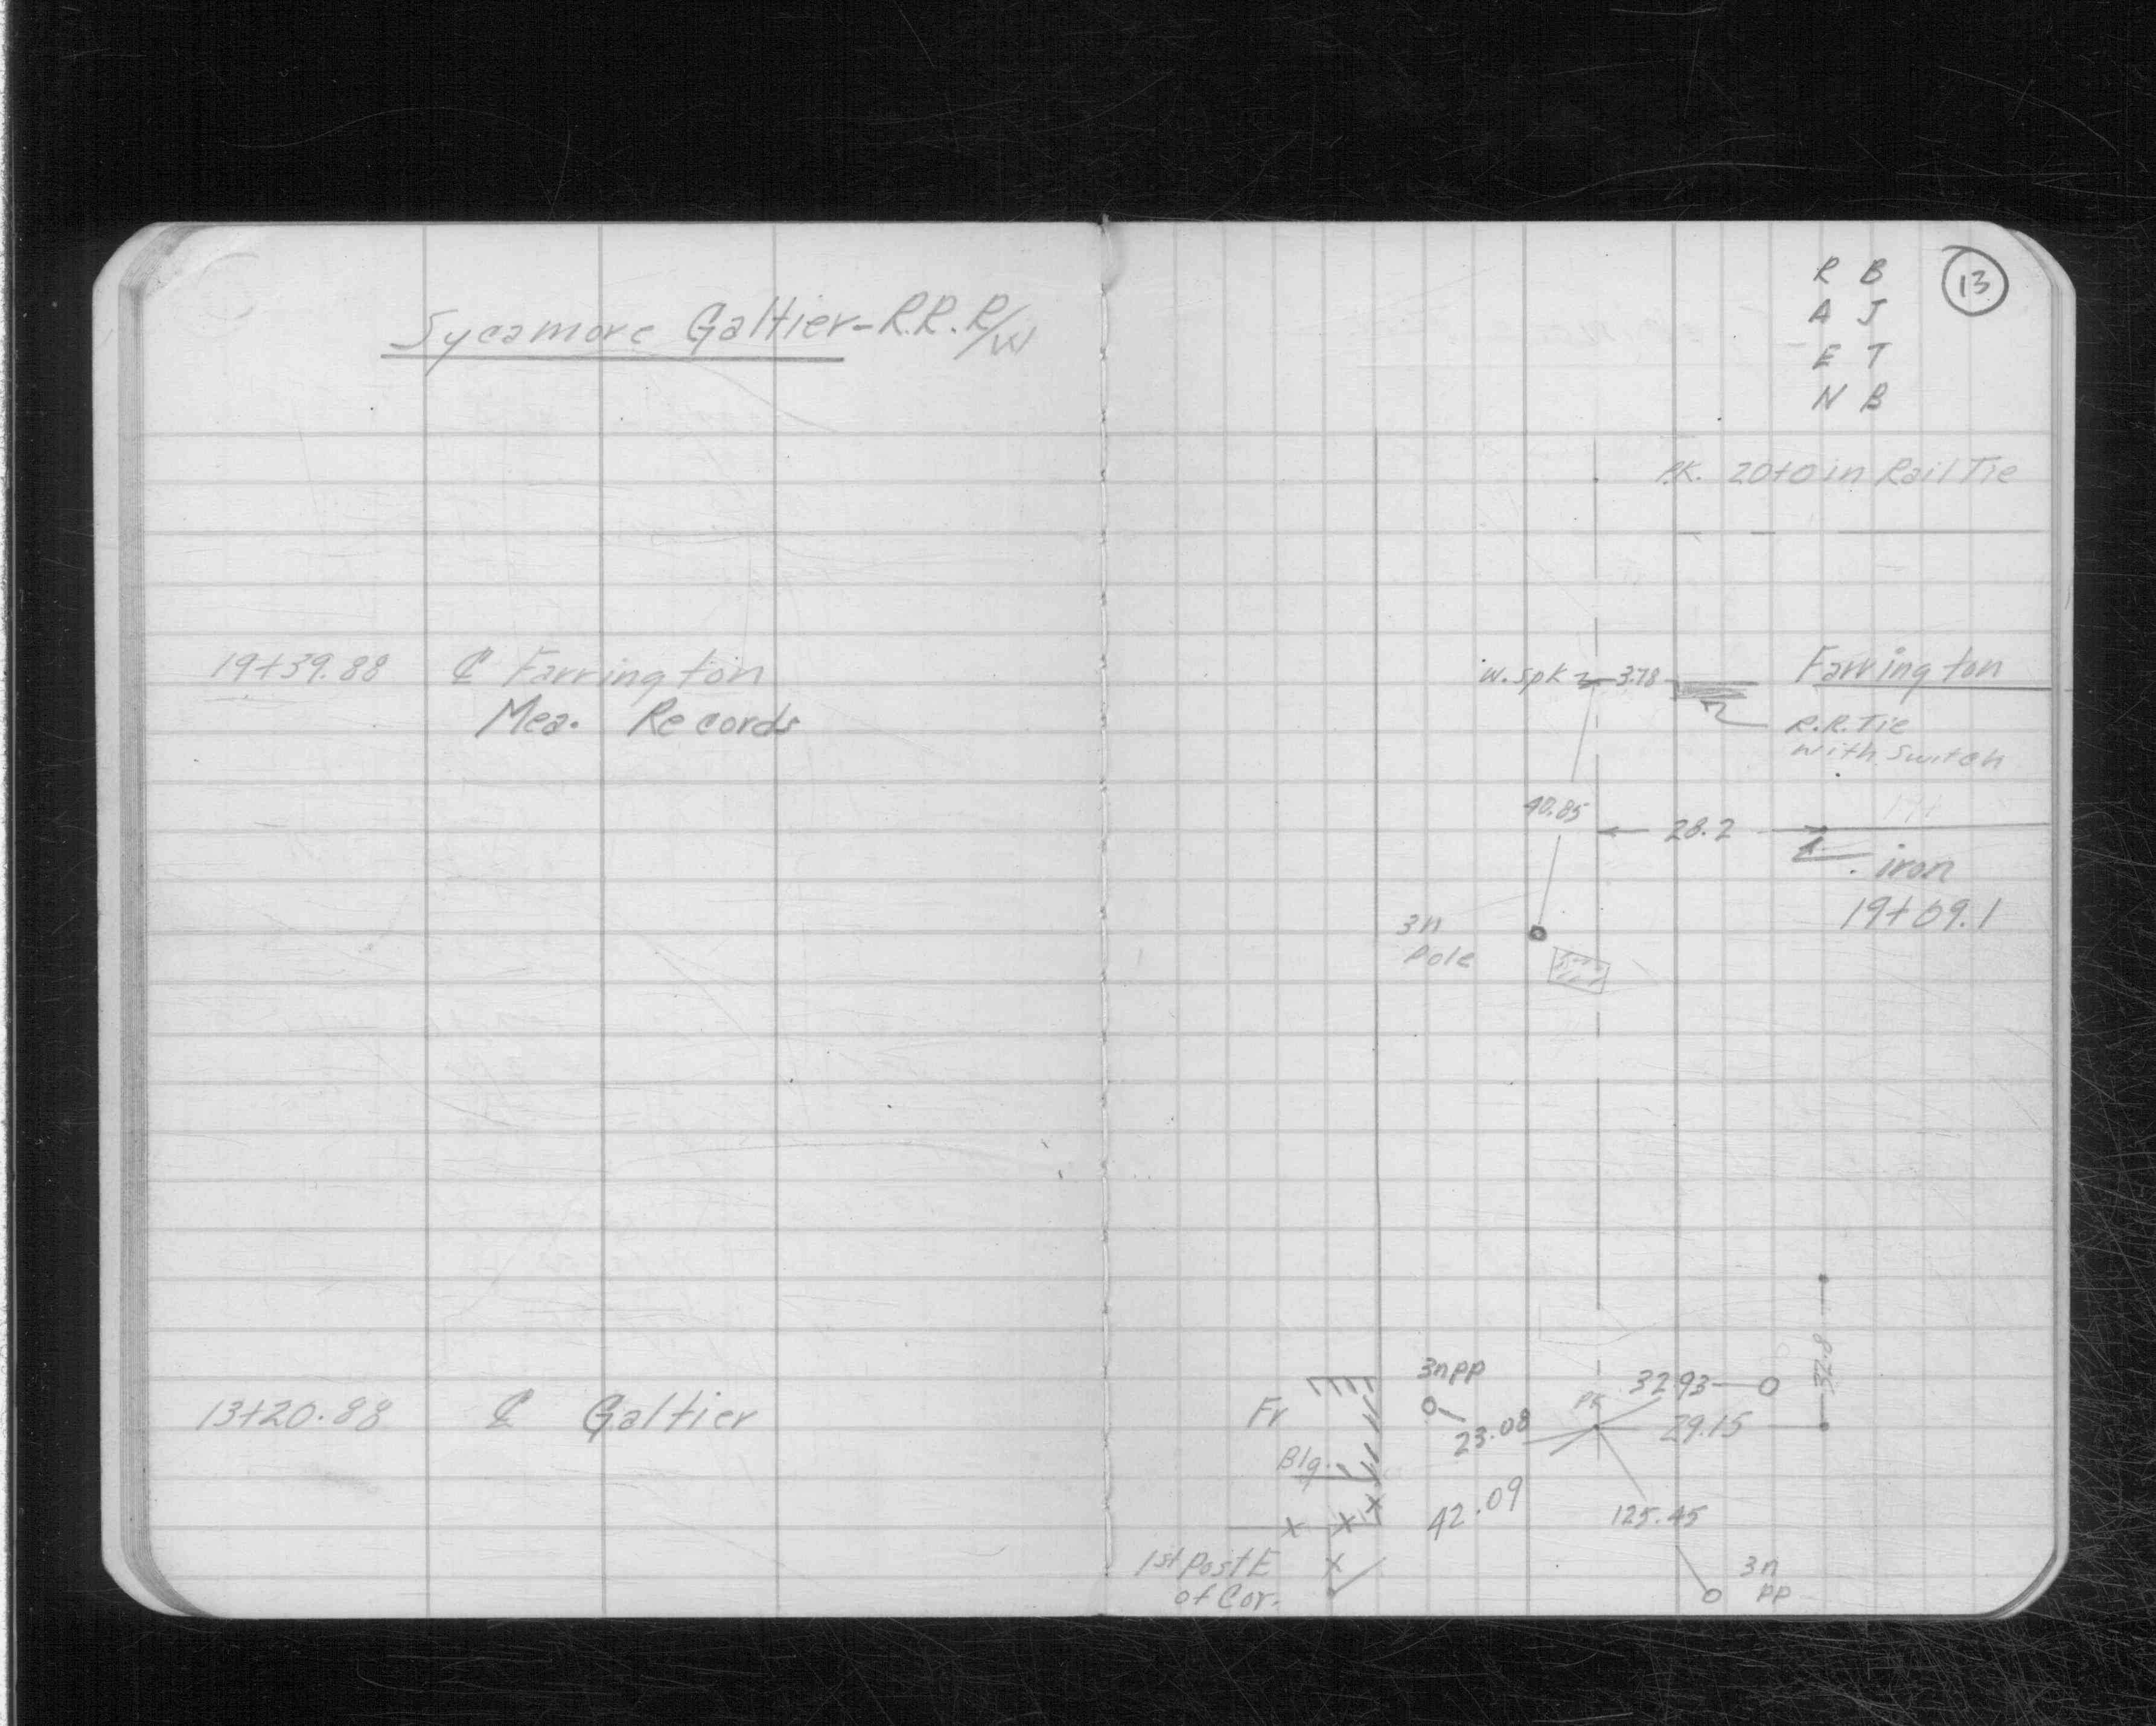 Sycamore Galtier-R.R. R/W
19+39.88 ℄ Farrington
Mea. Records
13+20.88 ℄ Galtier
13
R B
A J
E T
N B
P.K. 20+0 in Rail Tie
W. Spk 3.78 Farrington
R.R. Tie
with Switch
40.85
28.2
iron
19+69.1
3n
Pole
3npp
32.93
32.8
Fr
PK
23.08
29.15
Blg.
42.09
125.45
1st Post E
of Cor.
3n
pp